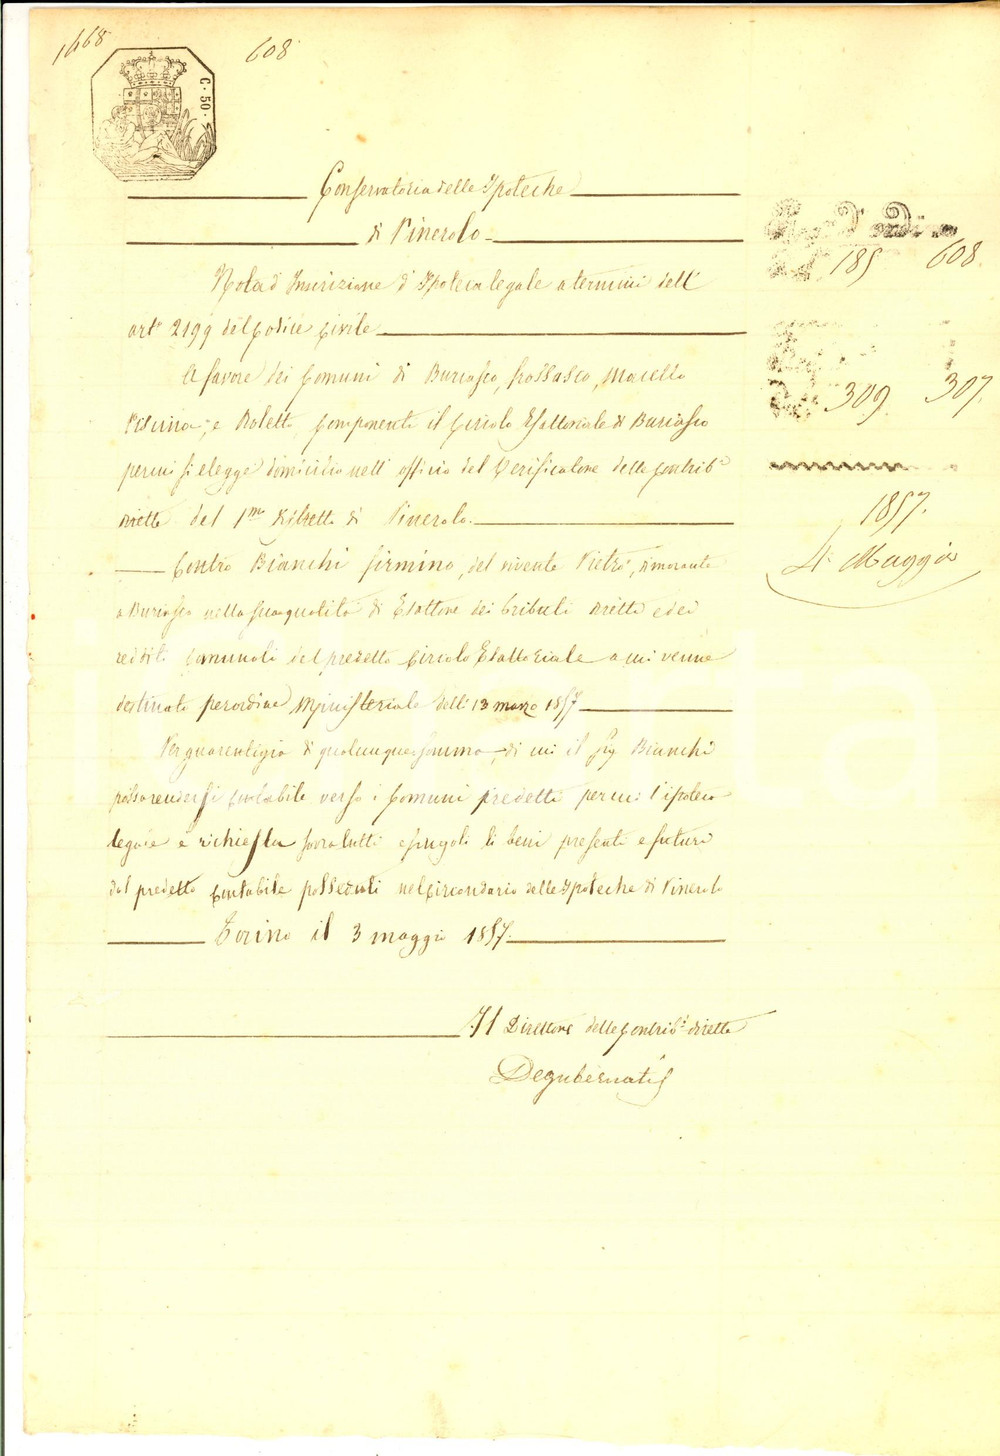 1668
608
C. 50.
Conservatoria delle Ipoteche
di Pinerolo
Regro d'ordine
185 608
Nota d'Inscrizione d'Ipoteca legale a termini dell'
art.º 2199 del Codice Civile
309. 307.
A favore dei Comuni di Buriasco, Frossasco, Macello
Piscina, e Roletto, componenti il Circolo Esattoriale di Buriasco
per cui si elegge domicilio nell'officio del Verificatore delle Contrib.i
dirette del 1.mo distretto di Pinerolo.
1857.
4. Maggio
Contro Bianchi Firmino, del vivente Pietro, dimorante
a Buriasco nella sua qualità di Esattore dei tributi diretti e dei
redditi comunali del predetto Circolo Esattoriale a cui venne
destinato per ordine Ministeriale delli 13 marzo 1857
Per guarentigia di qualunque somma, di cui il Sig Bianchi
possa rendersi contabile verso i Comuni predetti per cui l'ipoteca
legale è richiesta sovra tutti e singoli li beni presenti e futuri
dal predetto contabile posseduti nel Circondario delle Ipoteche di Pinerolo
Torino il 3 maggio 1857.
Il Direttore delle Contrib.i dirette
Degubernatis